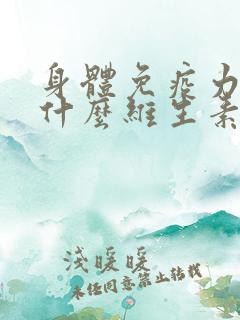 身體免疫力
什麼維生素
淺暖暖
未任同意禁止轉載